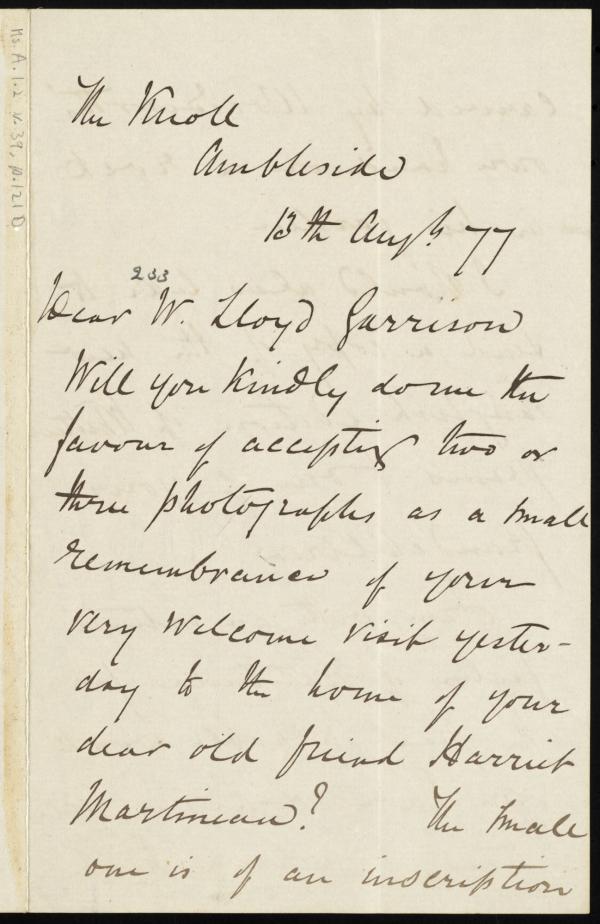 Ms. A. 1. 2 v. 39, p. 121 D
The Knoll
Ambleside
13th Augst 77
233
Dear W. Lloyd Garrison
Will you kindly do me the
favour of accepting two or
three photographs as a small
remembrance of your
very welcome visit yester-
day to the home of your
dear old friend Harriet
Martineau? The small
one is of an inscription